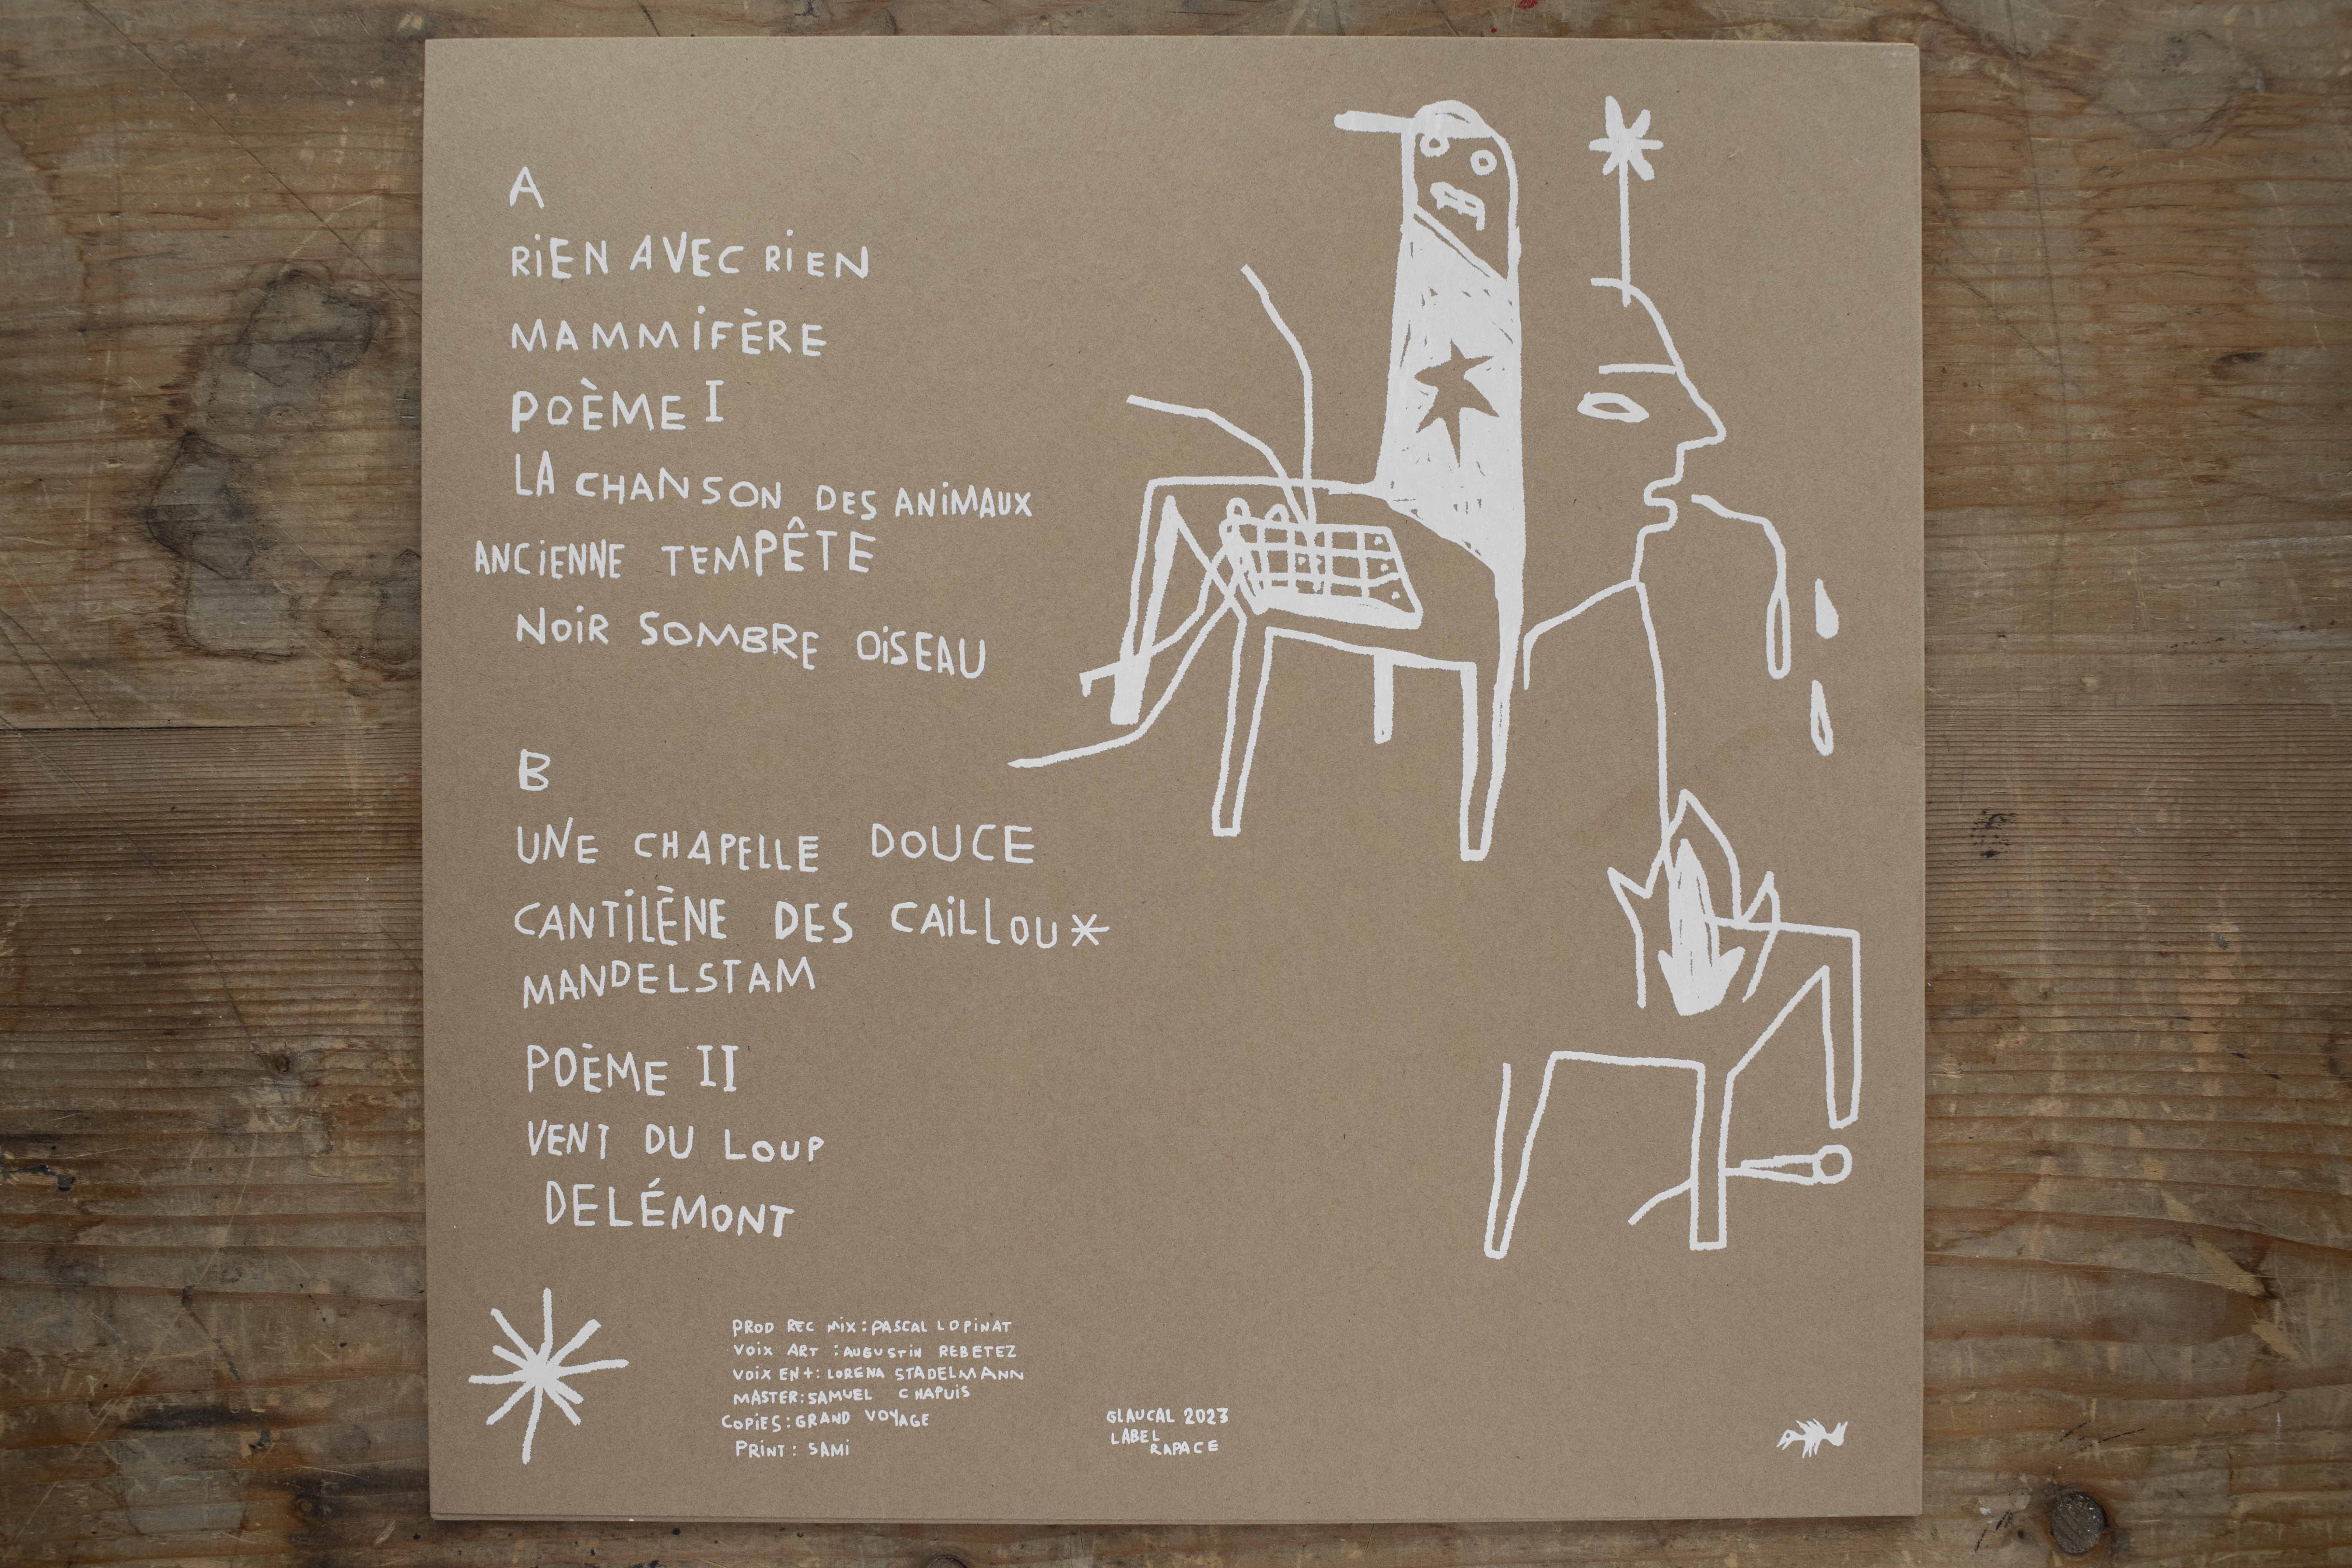 A
RiEN AVEC RiEN
MAMMiFÈRE
POÈME I
LA CHANSON DES ANiMAUX
ANCiENNE TEMPÊTE
NOiR SOMBRE OiSEAU
B
UNE CHAPELLE DOUCE
CANTiLÈNE DES CAiLLOU*
MANDELSTAM
POÈME II
VENT DU LOUP
DELÉMONT
PROD REC MiX : PASCAL LOPiNAT
VOiX ART : AUGUSTiN REBETEZ
VOiX EN+ : LORENA STADELMANN
MASTER : SAMUEL CHAPUiS
COPiES : GRAND VOYAGE
PRiNT : SAMi
GLAUCAL 2023
LABEL
RAPACE